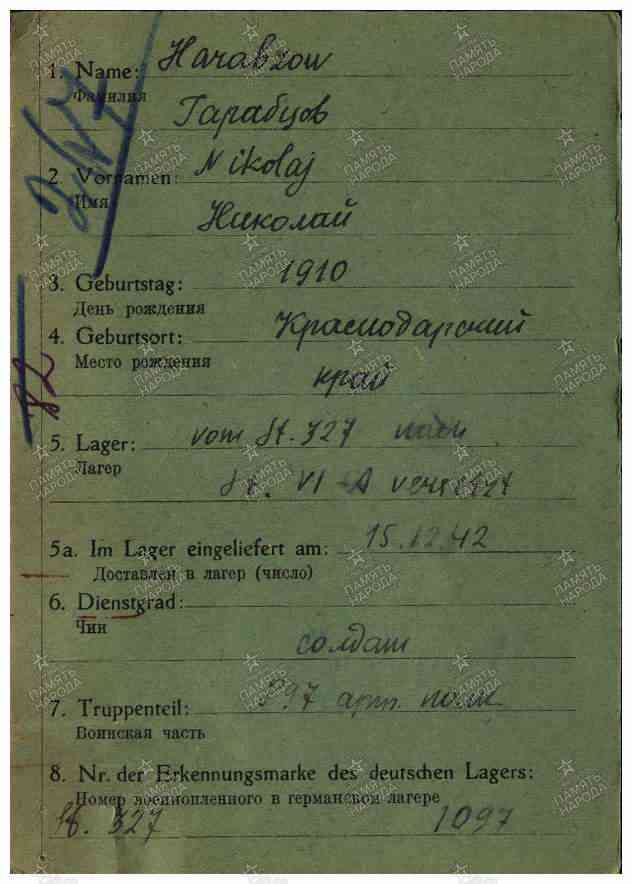 1. Name: Harabzow
Фамилия
Гарабцов
2. Vornamen: Nikolaj
Имя
Николай
3. Geburtstag: 1910
День рождения
4. Geburtsort: Краснодарский
Место рождения
край
82
5. Lager: vom St. 327 nach
Лагер
St. VI-A versetzt
5a. Im Lager eingeliefert am: 15.12.42
Доставлен в лагер (число)
6. Dienstgrad:
Чин
солдат
7. Truppenteil: арт. полк
Воинская часть
8. Nr. der Erkennungsmarke des deutschen Lagers:
Номер военнопленного в германском лагере
St. 327 1097
ПАМЯТЬ НАРОДА